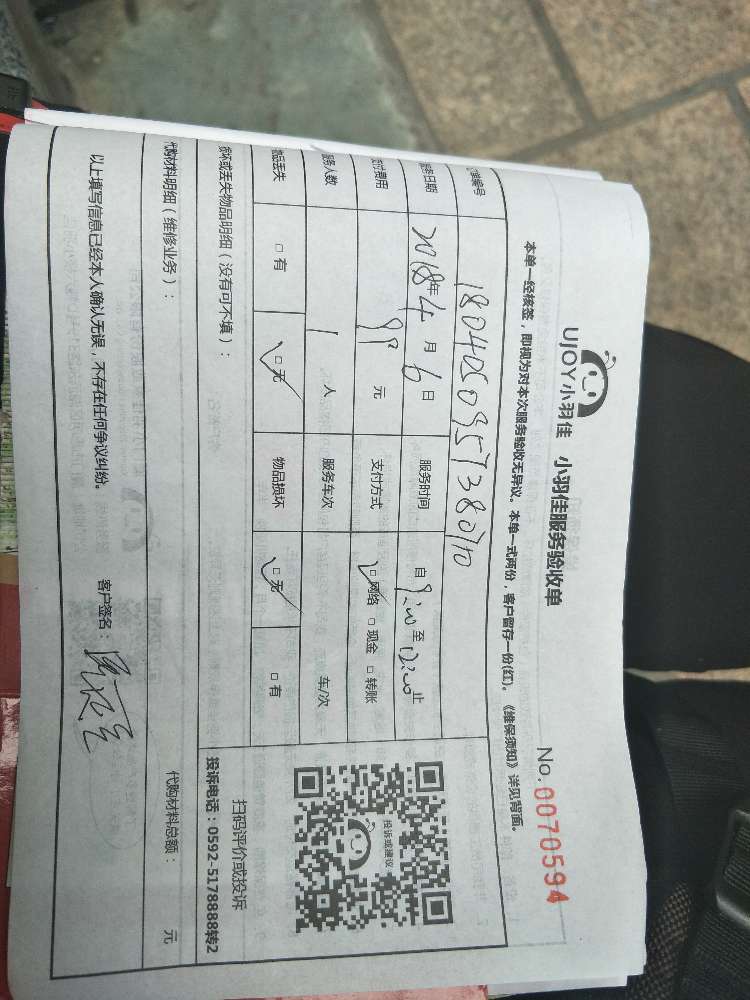 UJOY小羽佳 小羽佳服务验收单
No.0070594
本单一经核签，即视为对本次服务验收无异议。本单一式两份，客户留存一份(红)。《维保须知》详见背面。
编号
日期 2018年4月6日 服务时间 自 至 12:00 止
费用 99 元 支付方式 □网络 □现金 □转账
服务人数 1 人 服务车次 车/次
物品丢失 □有 □无 物品损坏 □无 □有
损坏或丢失物品明细（没有可不填）：
投诉或建议
扫码评价或投诉
投诉电话：0592-5178888转2
代购材料明细（维修业务）： 代购材料总额： 元
以上填写信息已经本人确认无误，不存在任何争议纠纷。 客户签名：